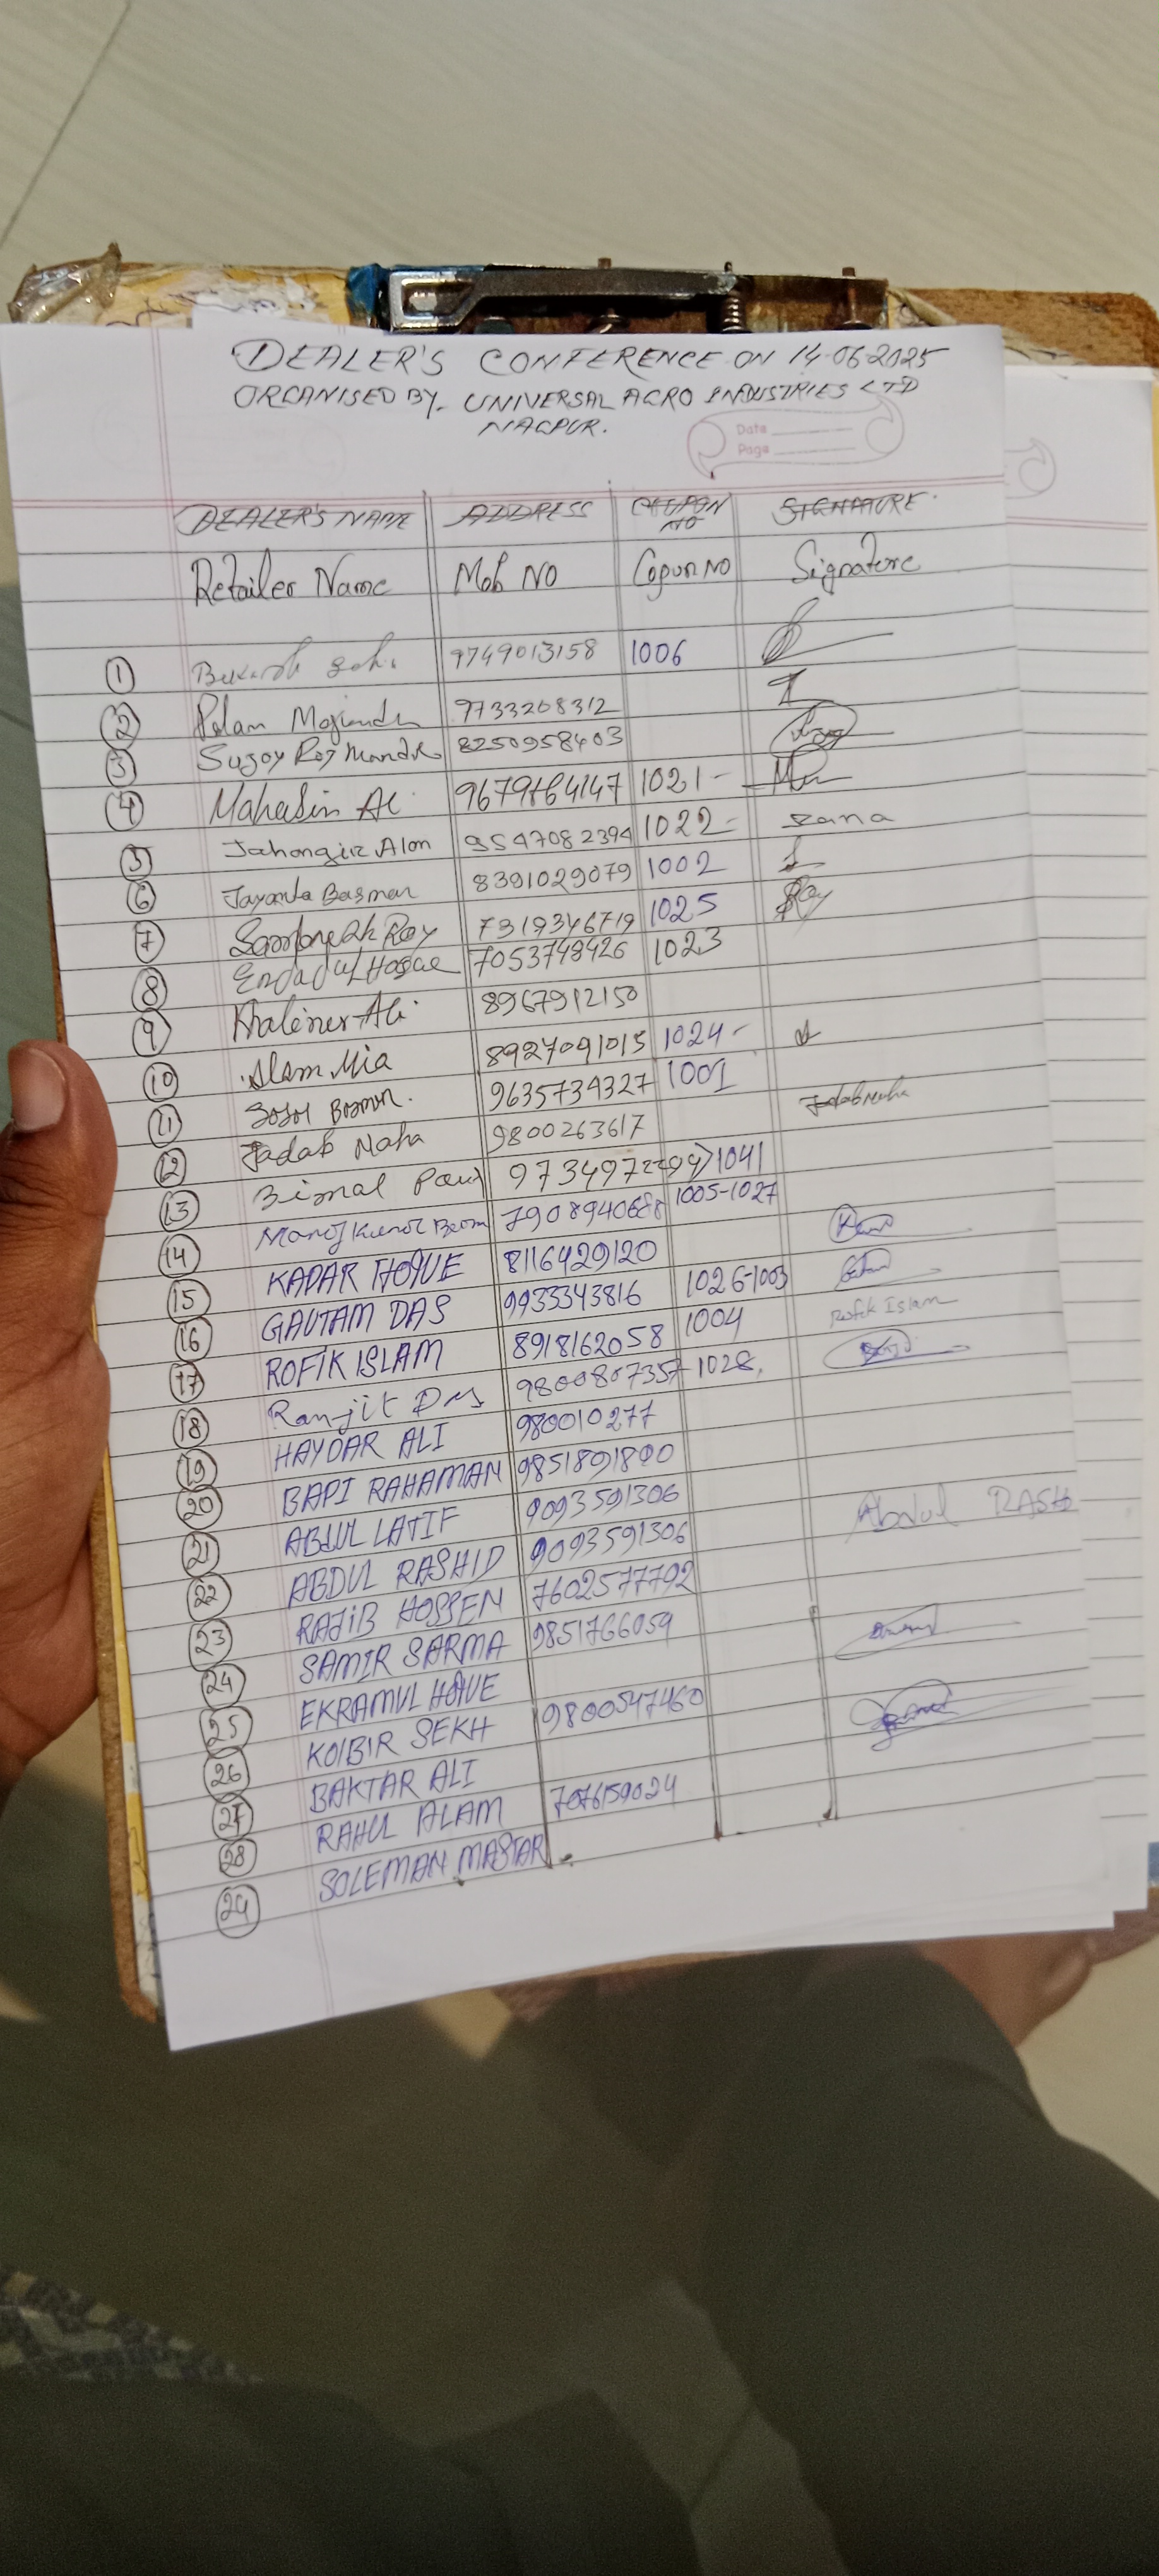 DEALER'S CONFERENCE ON 14-06-2025
ORGANISED BY- UNIVERSAL AGRO INDUSTRIES LTD
NAGPUR.
Date
Page
DEALER'S NAME ADDRESS COUPON NO SIGNATURE
Retailer Name Mob NO Copun NO Signature
1 9749013158 1006
2 9733268312
3 Sujoy Roy Mandal 8250958403
4 Mahasin Ali 1021-
5 Jahangir Alom 9547082394 1022- rana
6 Jayanta Basman 8391029079 1002
7 Roy 7319346719 1025 Roy
8 Endadul Hoque 7053748426 1023
9 Ali 8967912150
10 Alam Mia 8927091015 1024-
11 9635734327 1001
12 Jadab Naha 9800263617 Jadab naha
13 Bimal 1041
14 Manoj 1005-1027
15 KADAR HOQUE 8116429120
16 GAUTAM DAS 9933343816 1026-1003
17 ROFIK ISLAM 8918162058 1004 Rofik Islam
18 Ranjit Das 9800807357 1028.
19 HAYDAR ALI 980010277
20 BAPI RAHAMAN
21 ABDUL LATIF 9093591306
22 ABDUL RASHID 9093591306 Abdul RASH
23 RAJIB HOSSEN 7602577792
24 SAMIR SARMA 9851766059
25 EKRAMUL HOQUE
26 KOIBIR SEKH 9800547460
27 BAKTAR ALI
28 RAHUL ALAM 7076159024
29 SOLEMAN MASTAR